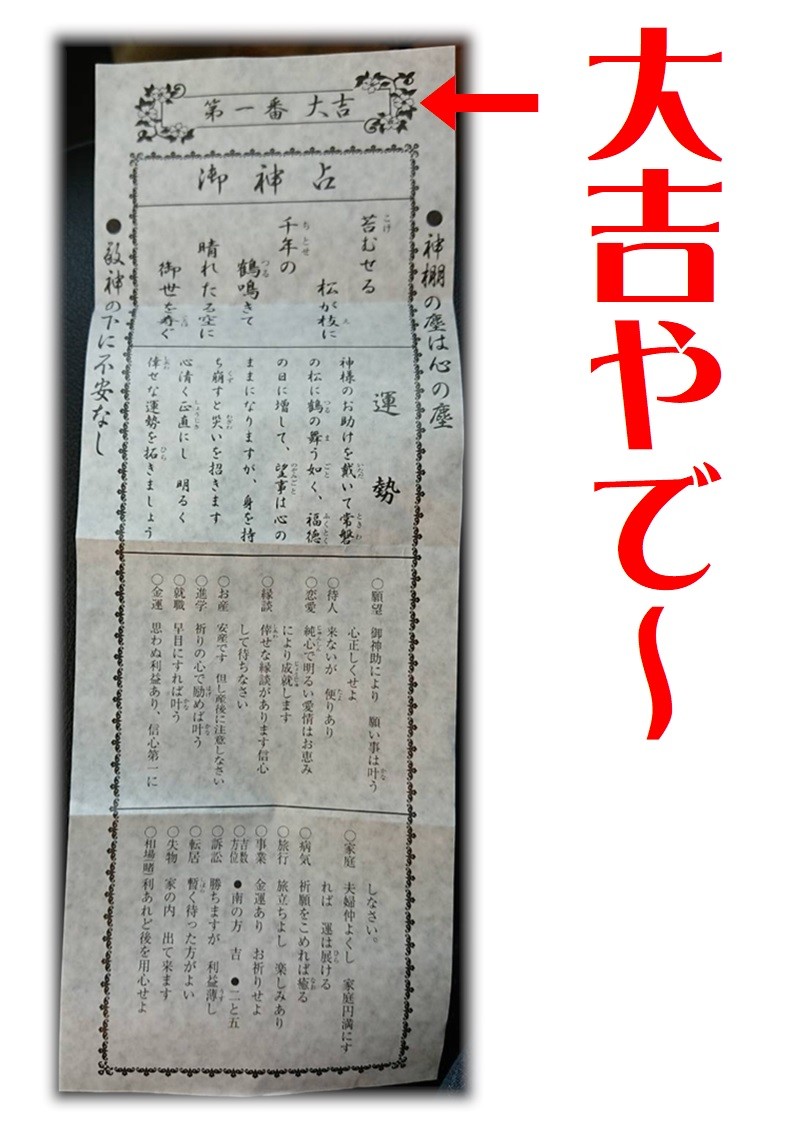 大吉やで〜
第一番 大吉
御神占
●神棚の塵は心の塵
苔むせる
松が枝に
千年の
鶴鳴きて
晴れたる空に
御世を寿ぐ
●敬神の下に不安なし
運勢
神様のお助けを戴いて常磐
の松に鶴の舞う如く、福徳
の日に増して、望事は心の
ままになりますが、身を持
ち崩すと災いを招きます
心清く正直にし 明るく
倖せな運勢を拓きましょう
○願望 御神助により 願い事は叶う
心正しくせよ
○待人 来ないが 便りあり
○恋愛 純心で明るい愛情はお恵み
により成就します
○縁談 倖せな縁談があります信心
して待ちなさい
○お産 安産です 但し産後に注意しなさい
○進学 祈りの心で励めば叶う
○就職 早目にすれば叶う
○金運 思わぬ利益あり、信心第一に
しなさい。
○家庭 夫婦仲よくし 家庭円満にす
れば 運は展ける
○病気 祈願をこめれば癒る
○旅行 旅立ちよし 楽しみあり
○事業 金運あり お祈りせよ
○吉数
○方位 ●南の方 吉 ●二と五
○訴訟 勝ちますが 利益薄し
○転居 暫く待った方がよい
○失物 家の内 出て来ます
○相場(賭) 利あれど後を用心せよ